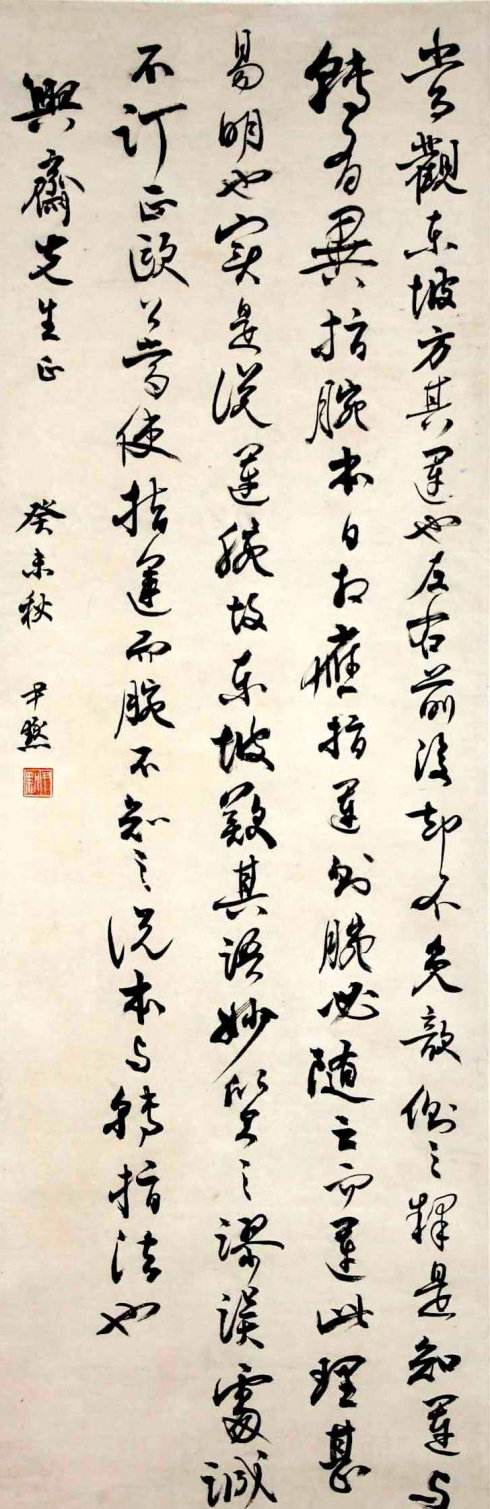 嘗觀東坡方其運也左右前後却不免欹側之釋是知運与
轉有異指腕本自相應指運則腕必隨之而運此理甚
易明也实是说運腕故東坡歎其語妙之謬誤處誠
不訂正歐公當使指運而腕不知之说本与轉指法也
興齋先生正
癸未秋 尹默